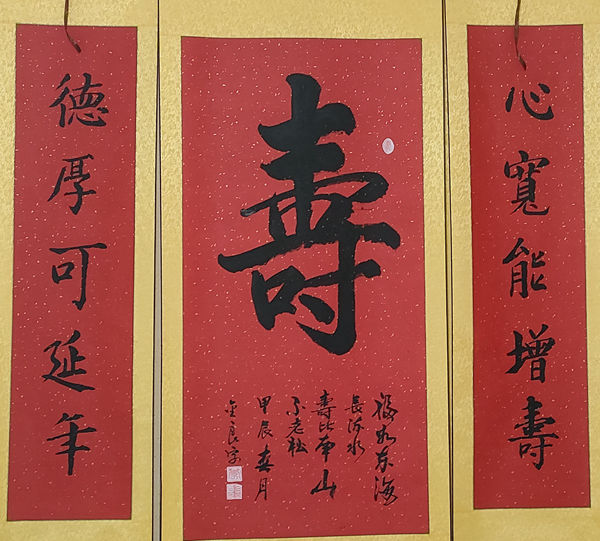 心寬能增壽
壽
福如东海
長流水
壽比南山
不老松
甲辰春月
德厚可延年